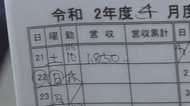 令和 2年度 4 月度
日 曜 勤 営収 営収累計
21 土 1850
22 日
23 月